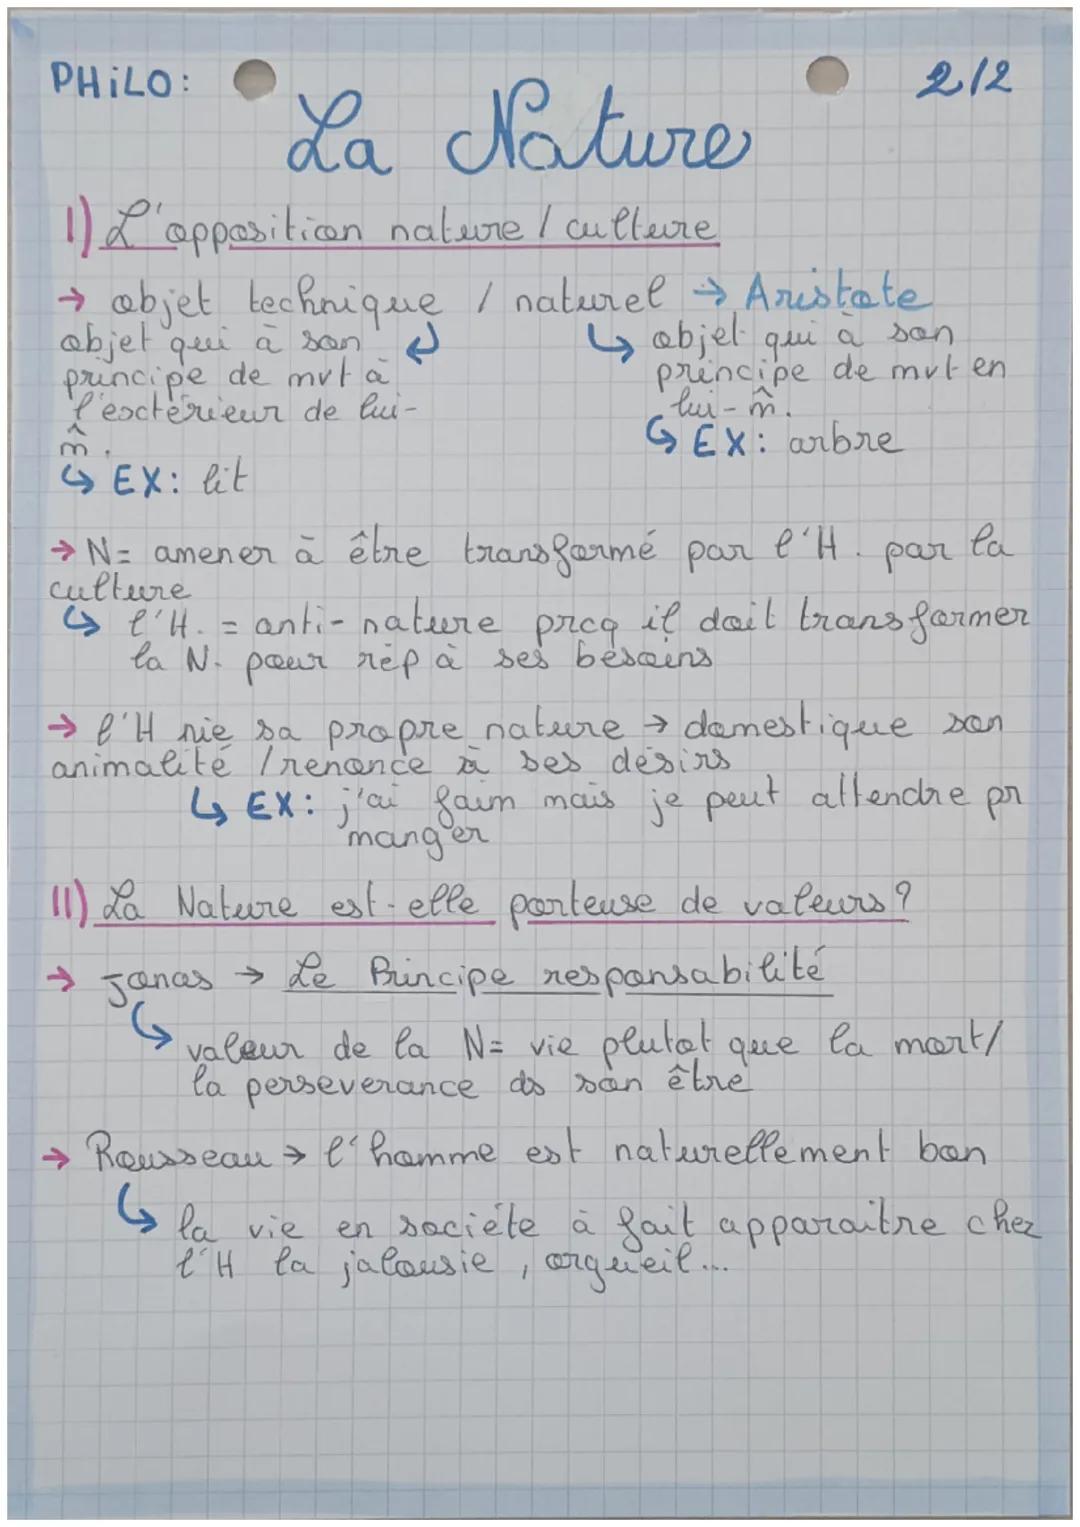 PHiLO: 2/2
La Nature
I) L'opposition nature / culture
→ objet technique / naturel → Aristote
objet qui à son ↲ ↳ objet qui à son
principe de mvt à principe de mvt en
l'exctérieur de lui- lui-m̂.
m̂. ↳ EX: arbre
↳ EX: lit
→ N= amener à être transformé par l'H. par la
culture
↳ l'H. = anti-nature prcq il doit transformer
la N. pour rép à ses besoins
→ l'H nie sa propre nature → domestique son
animalité / renonce à ses désirs
↳ EX: j'ai faim mais je peut attendre pr
manger
II) La Nature est-elle porteuse de valeurs ?
→ Jonas → Le Principe responsabilité
↳ valeur de la N= vie plutot que la mort/
la perseverance ds son être
→ Rousseau → l'homme est naturellement bon
↳ la vie en société à fait apparaitre chez
l'H la jalousie, orgueil...